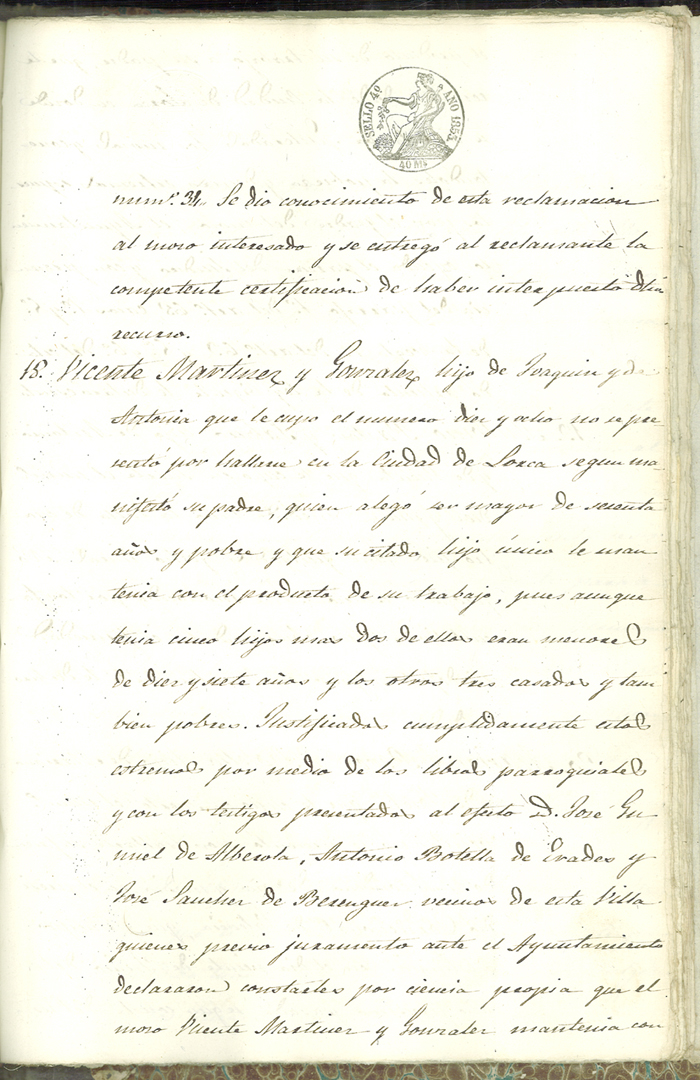 SELLO 4º AÑO 1853.
40 Ms
numº. 34 Se dio conocimiento de esta reclamacion
al moro interesado y se entregó al reclamante la
competente certificacion de haber interpuesto dho
recurso.
18. Vicente Martinez y Gonzalez hijo de Joaquin y de
Antonia que le cupo el numero diez y ocho no se pre
sentó por hallarse en la Ciudad de Lorca segun ma-
nifestó su padre, quien alegó ser mayor de sesenta
años y pobre y que su citado hijo único le man
tenia con el producto de su trabajo, pues aunque
tenia cinco hijos mas dos de ellos eran menores
de diez y siete años y los otros tres casados y tam
bien pobres. Justificados cumplidamente estos
estremos por medio de los libros parroquiales
y con los testigos presentados al efecto D. José Gu
miel de Alberola, Antonio Botella de Prades y
José Sanchez de Berenguer vecinos de esta Villa
quienes previo juramento ante el Ayuntamiento
declararon constarles por ciencia propia que el
moro Vicente Martinez y Gonzalez mantenia con